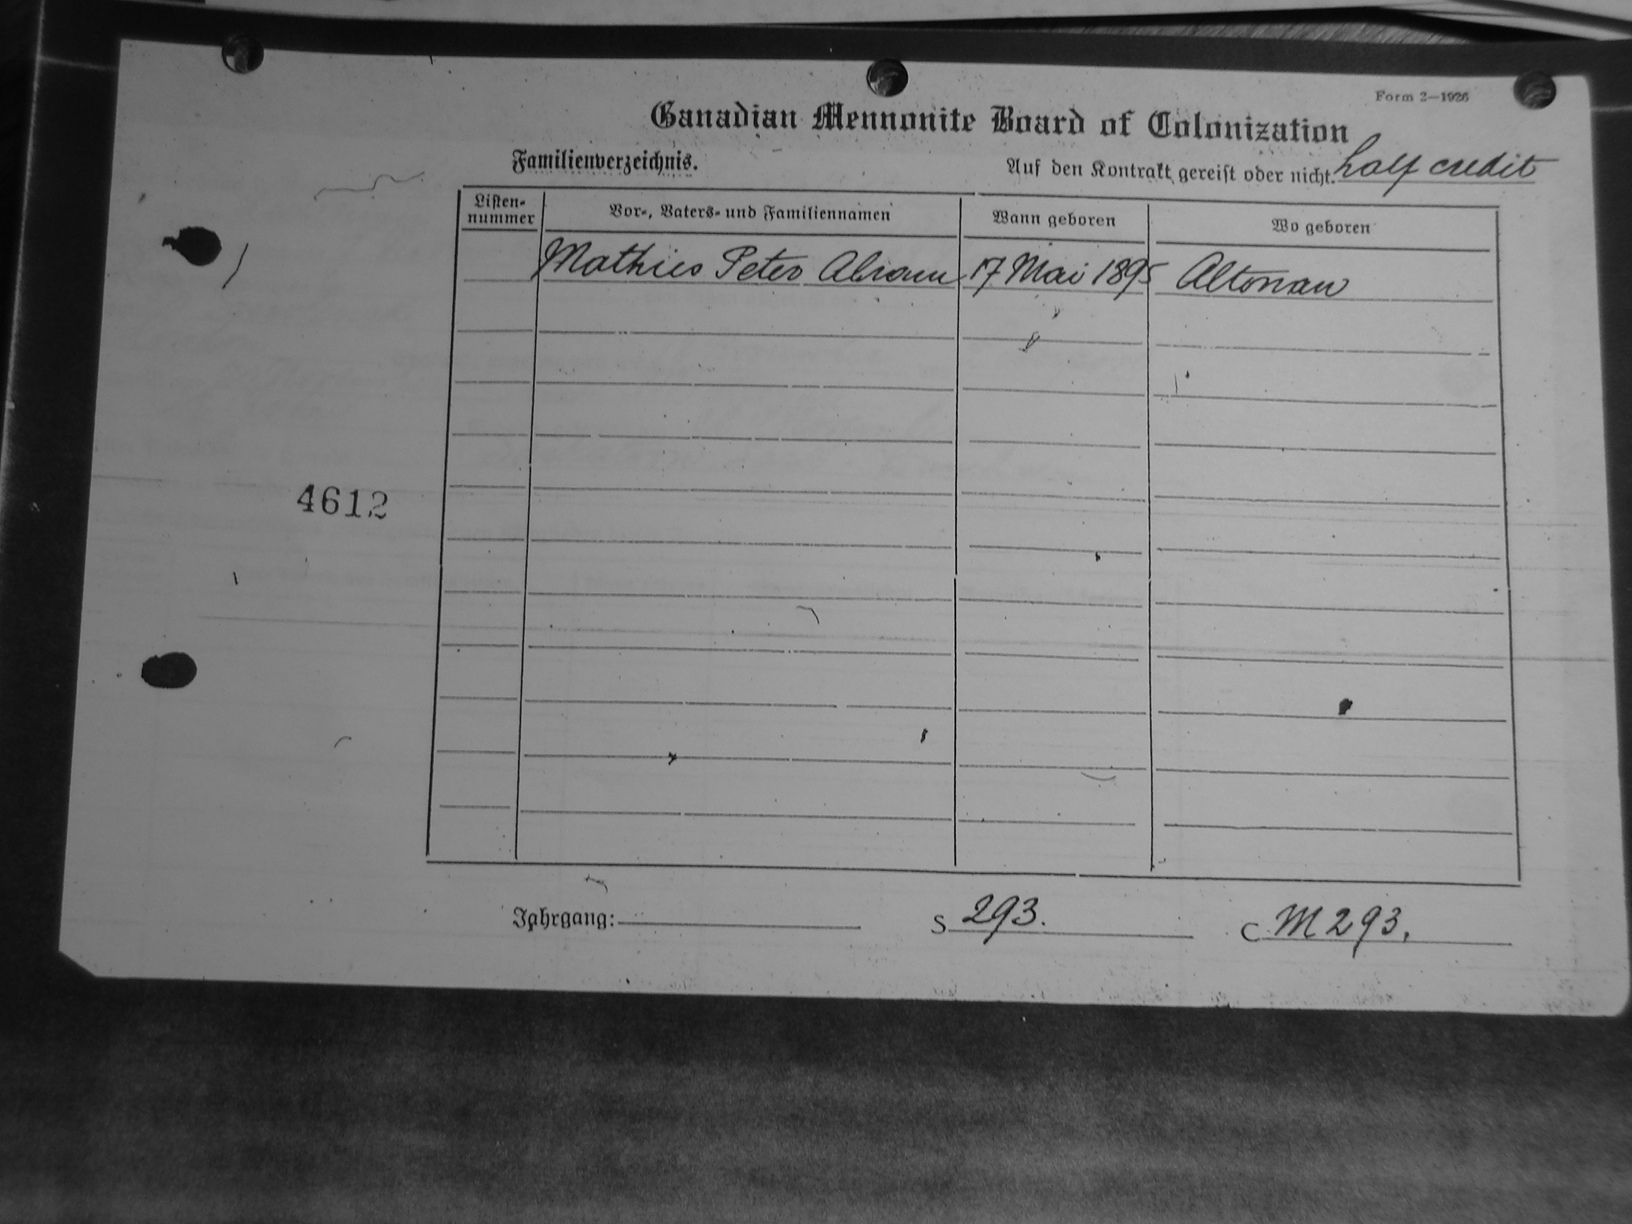 Form 2—1926
Canadian Mennonite Board of Colonization
Familienverzeichnis.
Auf den Kontrakt gereist oder nicht. half credit
Listen-
nummer
Vor-, Vaters- und Familiennamen
Wann geboren
Wo geboren
Mathies Peter Abram 17 Mai 1895 Altonau
4612
Jahrgang:
S 293.
C M 293.